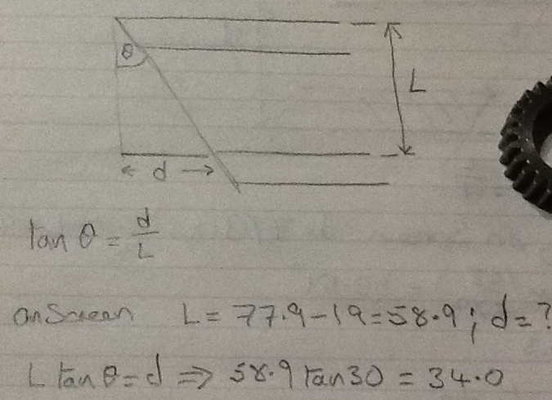 θ
L
← d →
tan θ = d/L
onScreen L = 77.9-19=58.9; d=?
L tan θ = d ⇒ 58.9 tan30 = 34.0